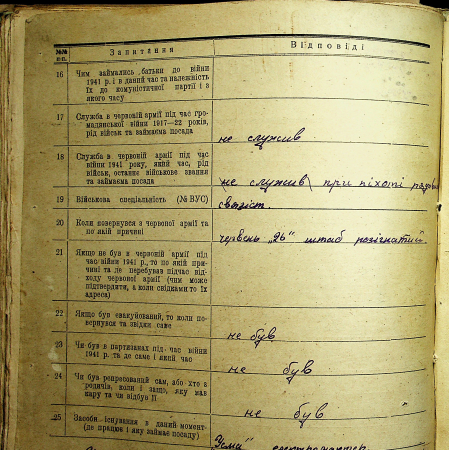 №№ п.п. Запитання Відповіді
16 Чим займались батьки до війни
1941 р. і в даний час та належність
їх до комуністичної партії і з
якого часу
17 Служба в червоній армії під час гро-
мадянської війни 1917—22 років,
рід військ та займаєма посада
не служив
18 Служба в червоній армії під час
війни 1941 року, який час, рід
військ, останнє військове звання
та займаєма посада
не служив при піхоті
19 Військова спеціяльність (№ ВУС)
связіст.
20 Коли повернувся з червоної армії та
по якій причині
червень „26" штаб розігнатий.
21 Якщо не був в червоній армії під
час війни 1941 р., то по якій при-
чині та де перебував підчас від-
ходу червоної армії (чим може
підтвердити, а коли свідками то їх
адреса)
22 Якщо був евакуйований, то коли по-
вернувся та звідки саме
не був
23 Чи був в партизанах під час війни
1941 р. та де саме і який час
не був
24 Чи був репресований сам, або хто з
родичів, коли і защо, яку мав
кару та чи відбув її
не був "
25 Засоби існування в даний момент
(де працює і яку займає посаду)